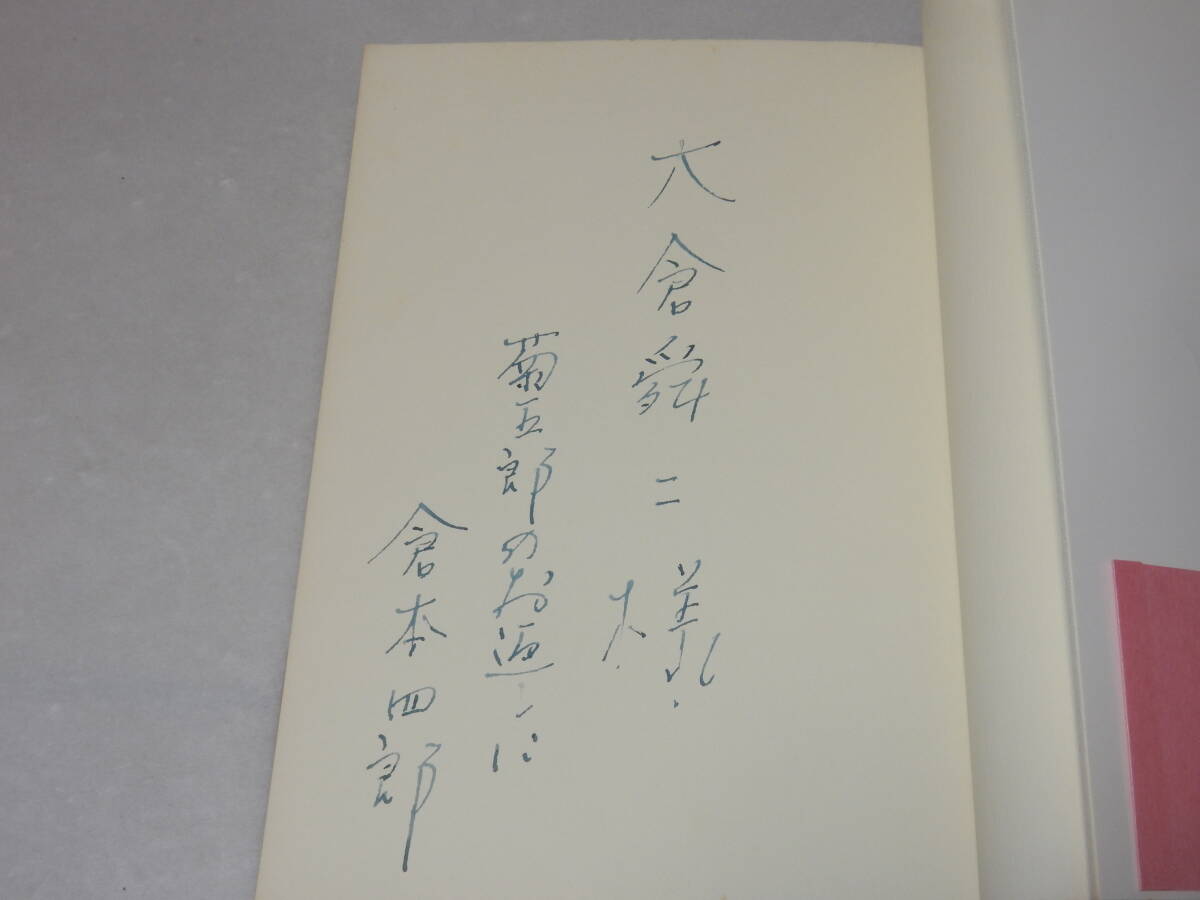 大倉舜二様
菊五郎のお返しに
倉本四郎